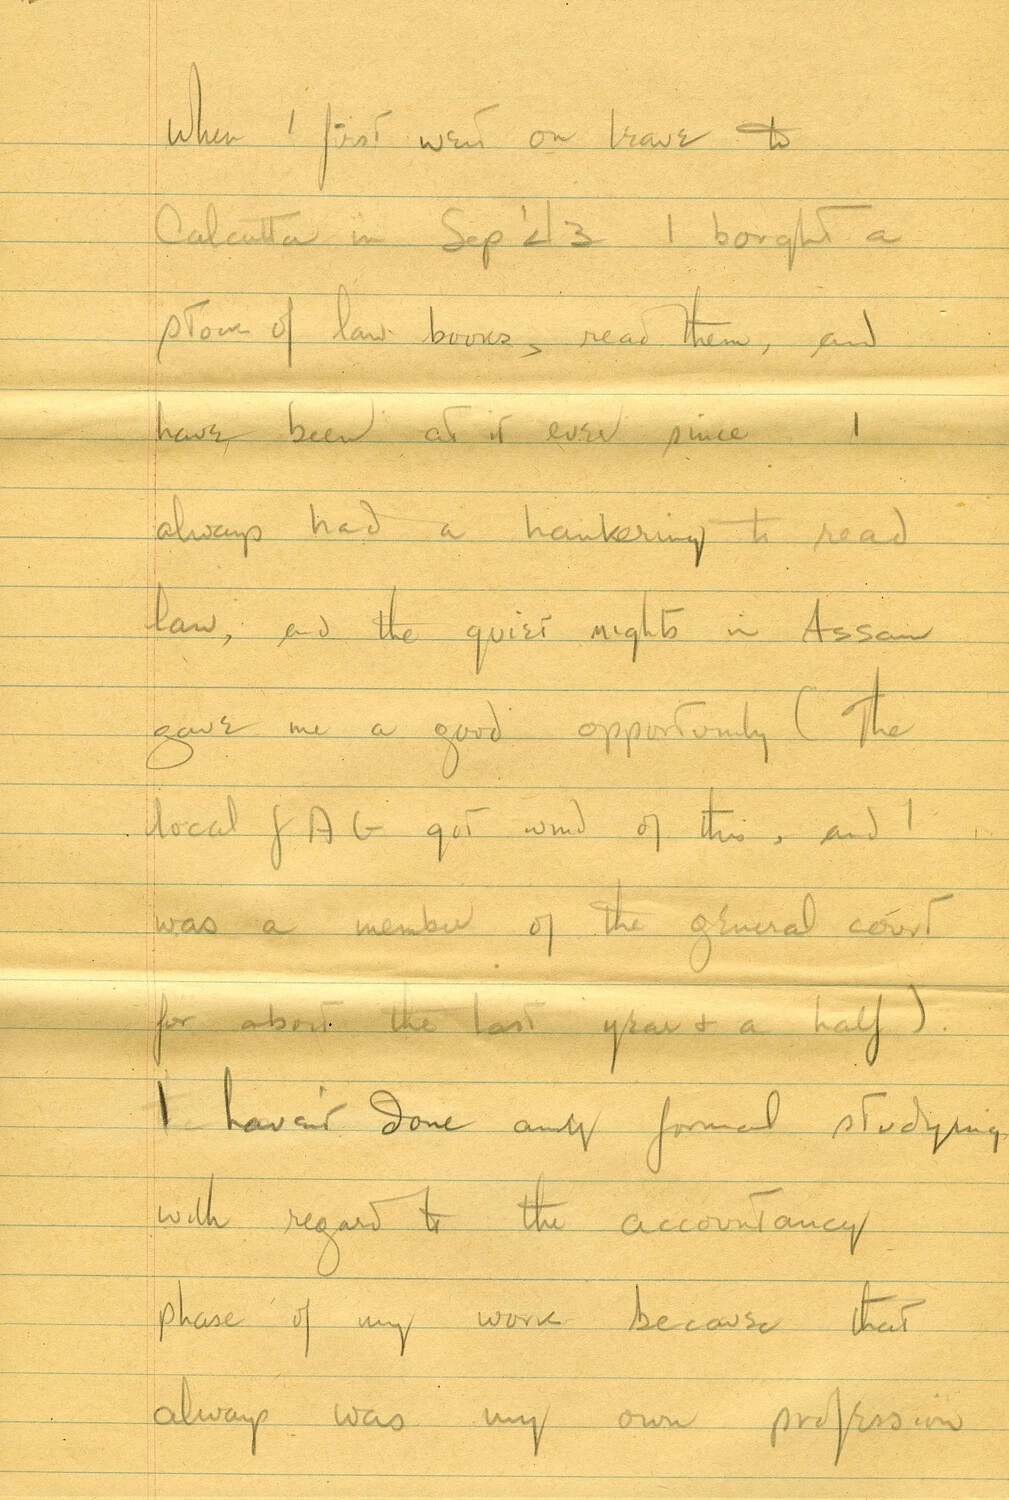 When I first went on leave to
Calcutta in Sep '43 I bought a
store of law books, read them, and
have been at it ever since I
always had a hankering to read
law, and the quiet nights in Assam
gave me a good opportunity (The
local JAG got wind of this, and I
was a member of the general court
for about the last year & a half).
I haven't done any formal studying
with regard to the accountancy
phase of my work because that
always was my own profession